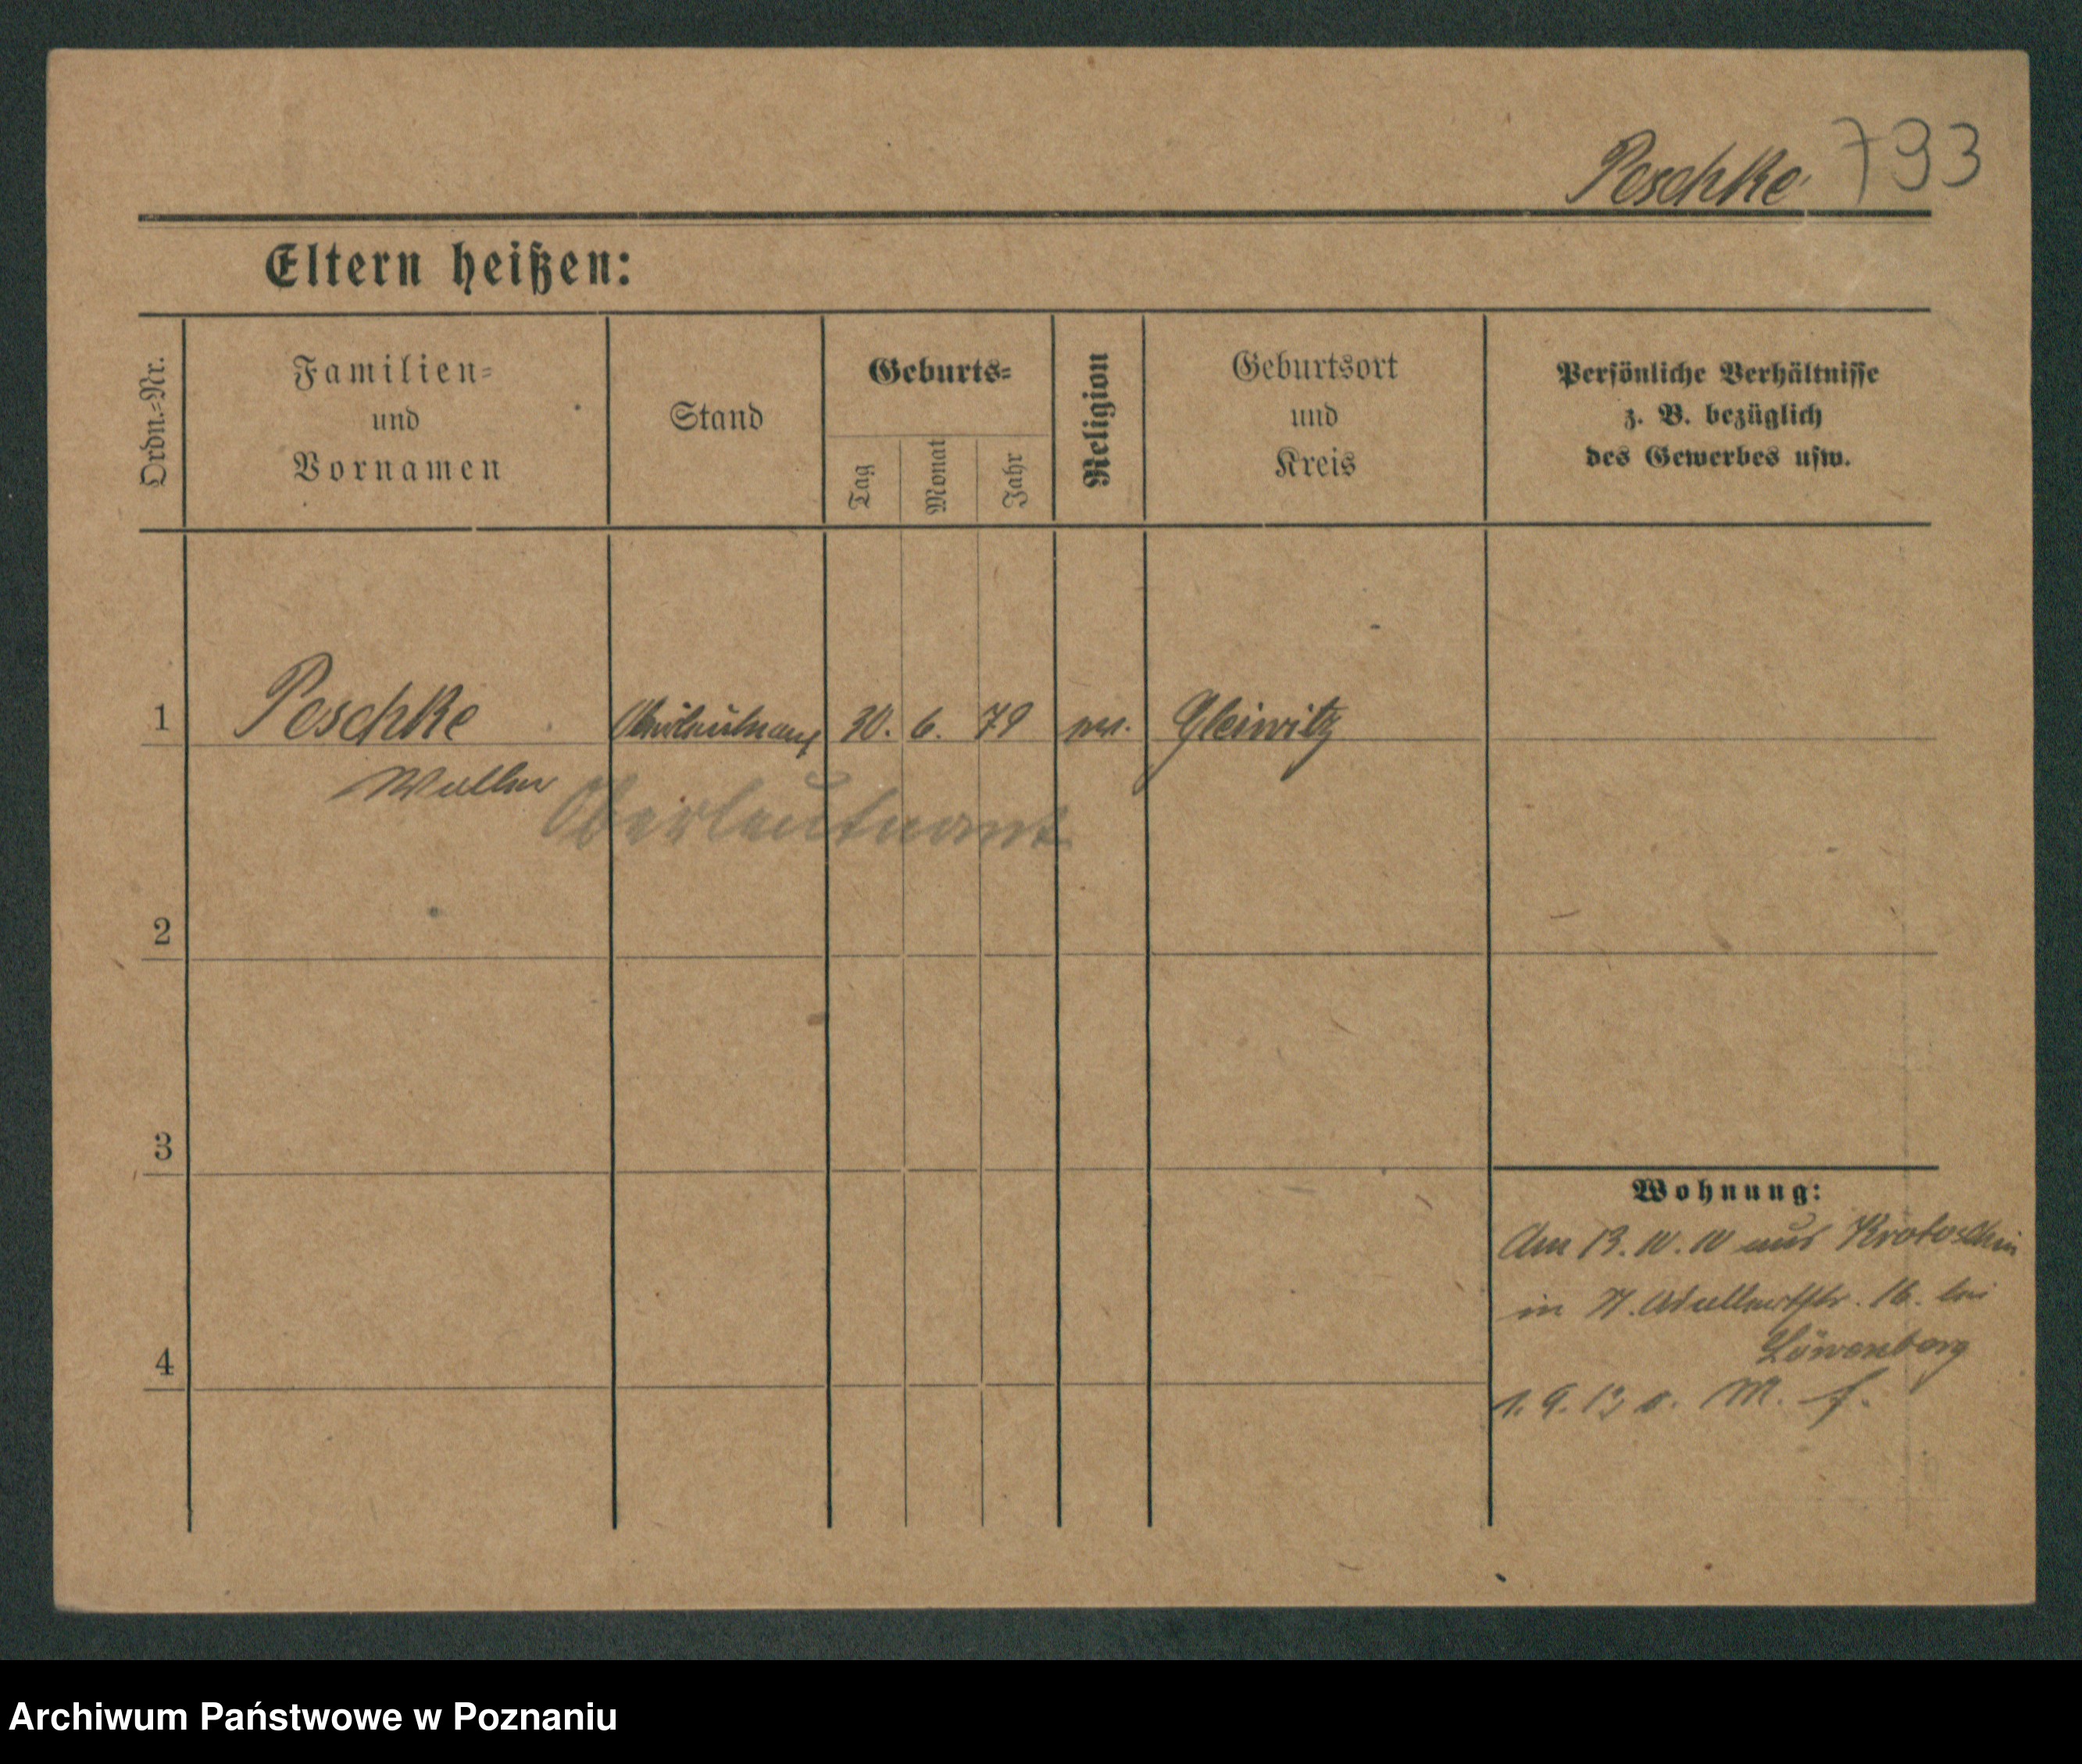 Peschke 793
Eltern heißen:
Ordn.=Nr.
Familien=
und
Vornamen
Stand
Geburts=
Tag
Monat
Jahr
Religion
Geburtsort
und
Kreis
Persönliche Verhältnisse
z. B. bezüglich
des Gewerbes usw.
1 Peschke Oberleutnant 30. 6. 79 Gleiwitz
Oberleutnant
2
3
Wohnung:
Am 13. 10. 10 aus Krotoschin
in 16. bei
Löwenberg
4
1. 9. M.
Archiwum Państwowe w Poznaniu